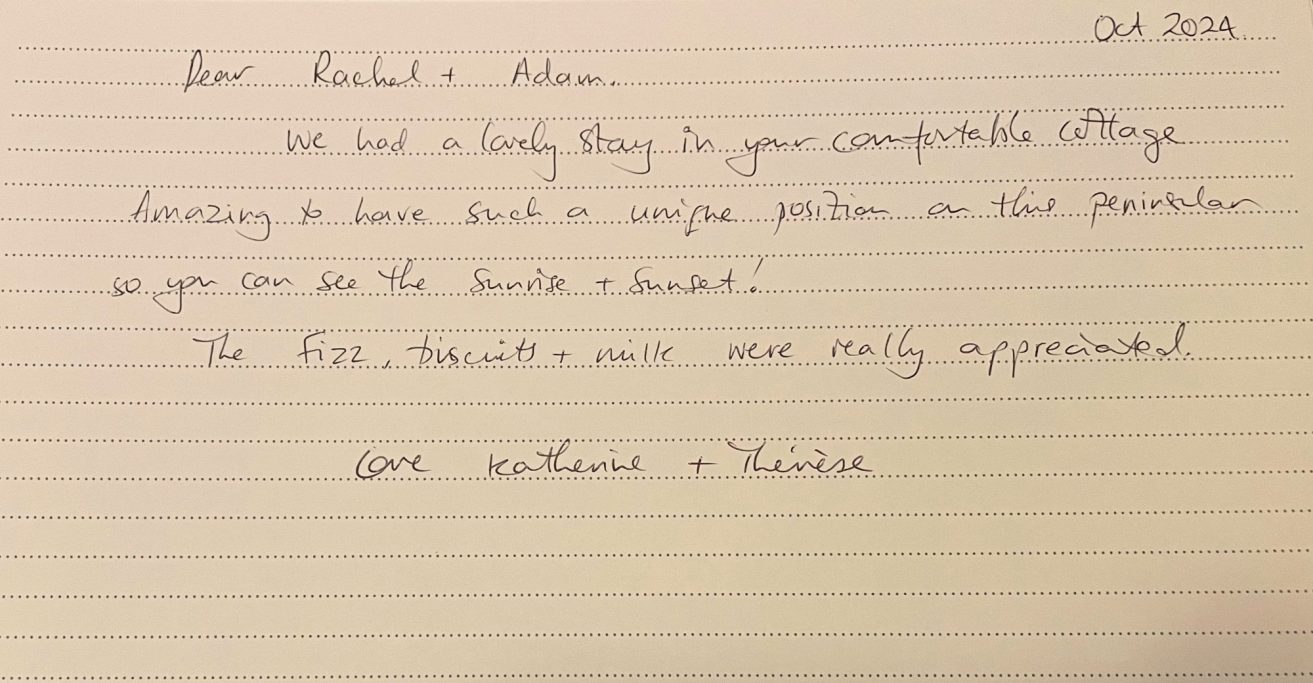 Oct 2024
Dear Rachel + Adam.
We had a lovely stay in your comfortable cottage
Amazing to have such a unique position on this peninsular
so you can see the sunrise + sunset!
The fizz, biscuits + milk were really appreciated.
Love Katherine + Thérèse